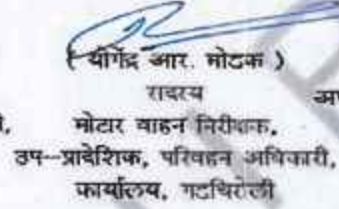 ( योगेंद्र आर. मोटक )
सदस्य
मोटार वाहन निरीक्षक,
उप–प्रादेशिक, परिवहन अधिकारी,
कार्यालय, गडचिरोली